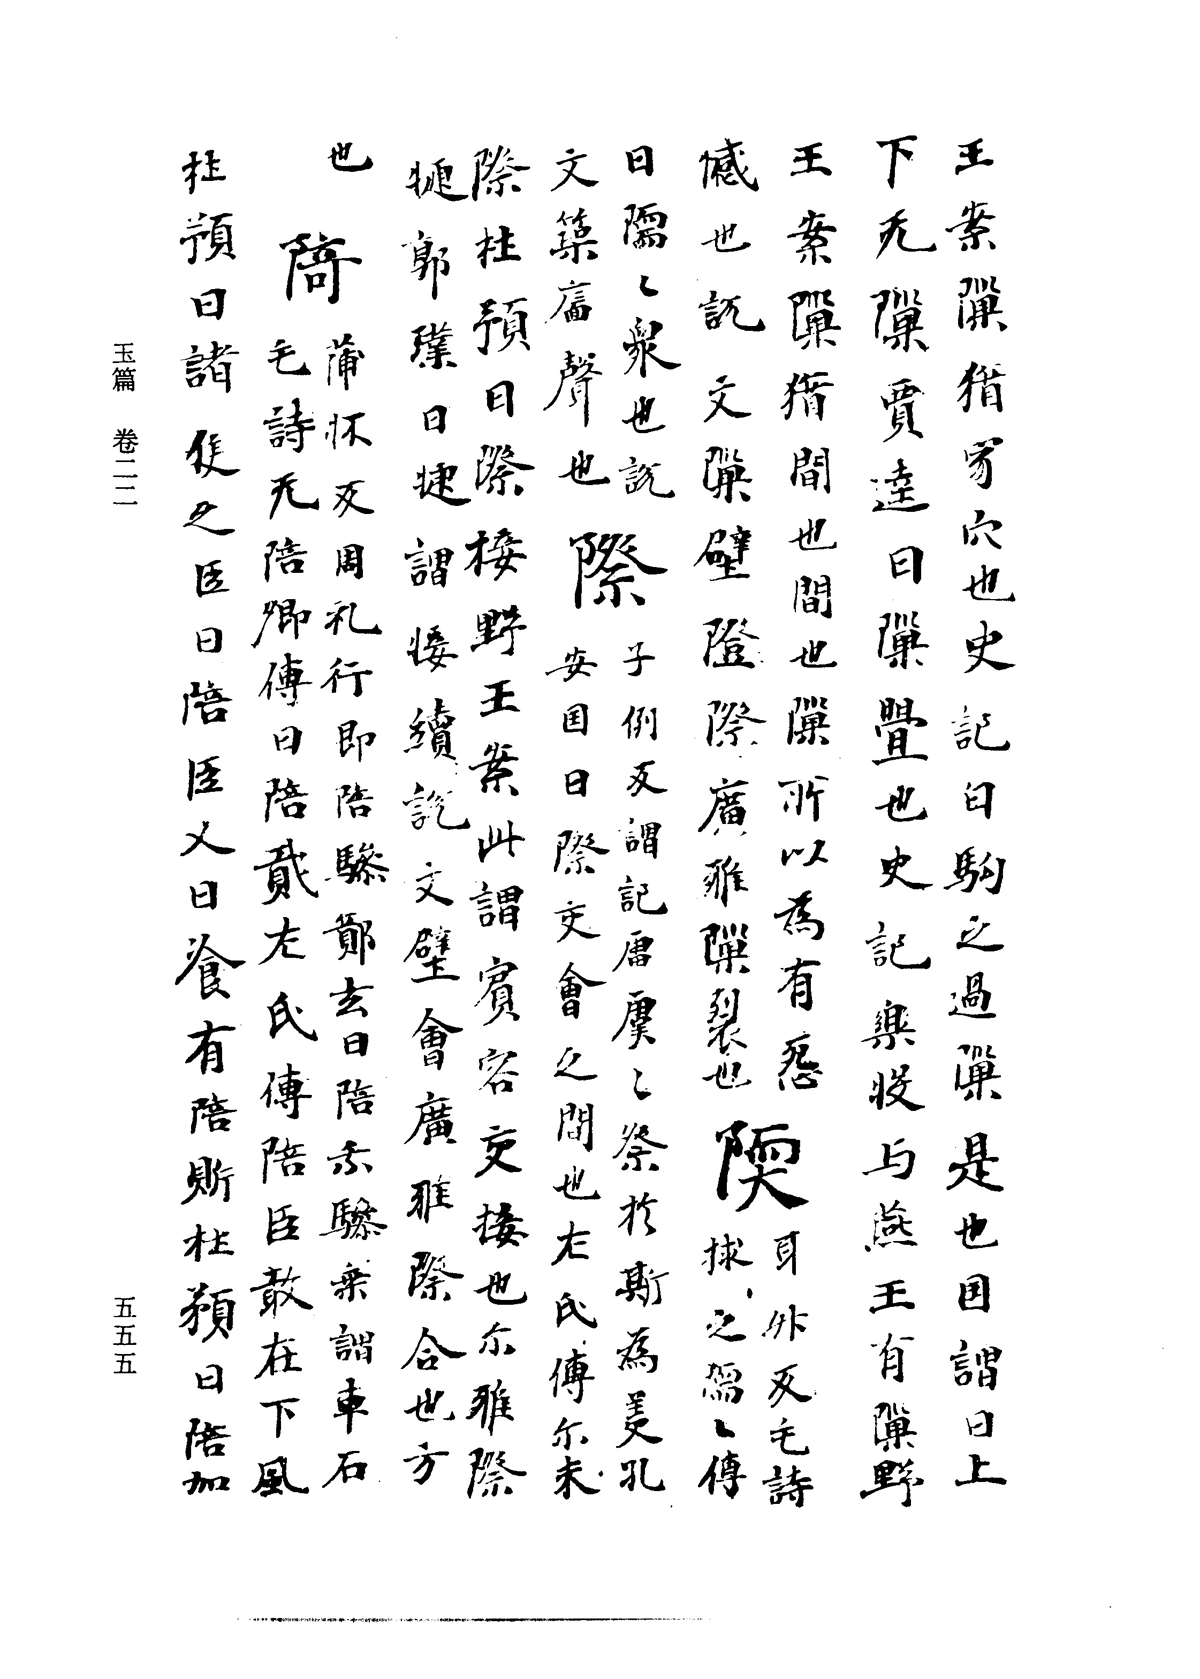 王案隟猶穿穴也史記曰駒之過隟是也国謂曰上
下无隟賈逵曰隟舋也史記樂毅与燕王有隟野
王案隟猶間也間也隟所以為有惡
憾也說文隟壁隥際廣雅隟裂也
陾
耳外反毛詩
捄〻之陾〻傳
曰陾〻衆也說
文築墻聲也
際
子例反謂記唐虞〻祭於斯為美孔
安国曰際交會之間也左氏傳尓未
際杜預曰際接野王案此謂賓客交接也尓雅際
㨗郭璞曰捷謂接續說文壁會廣雅際合也方
也
陪
蒲怀反周礼行即陪驂鄭玄曰陪乘驂乘謂車右
毛詩无陪卿傳曰陪貳左氏傳陪臣敢在下風
杜預曰諸侯之臣曰陪臣又曰飧有陪斯杜預曰陪加
玉篇 卷二二
五五五